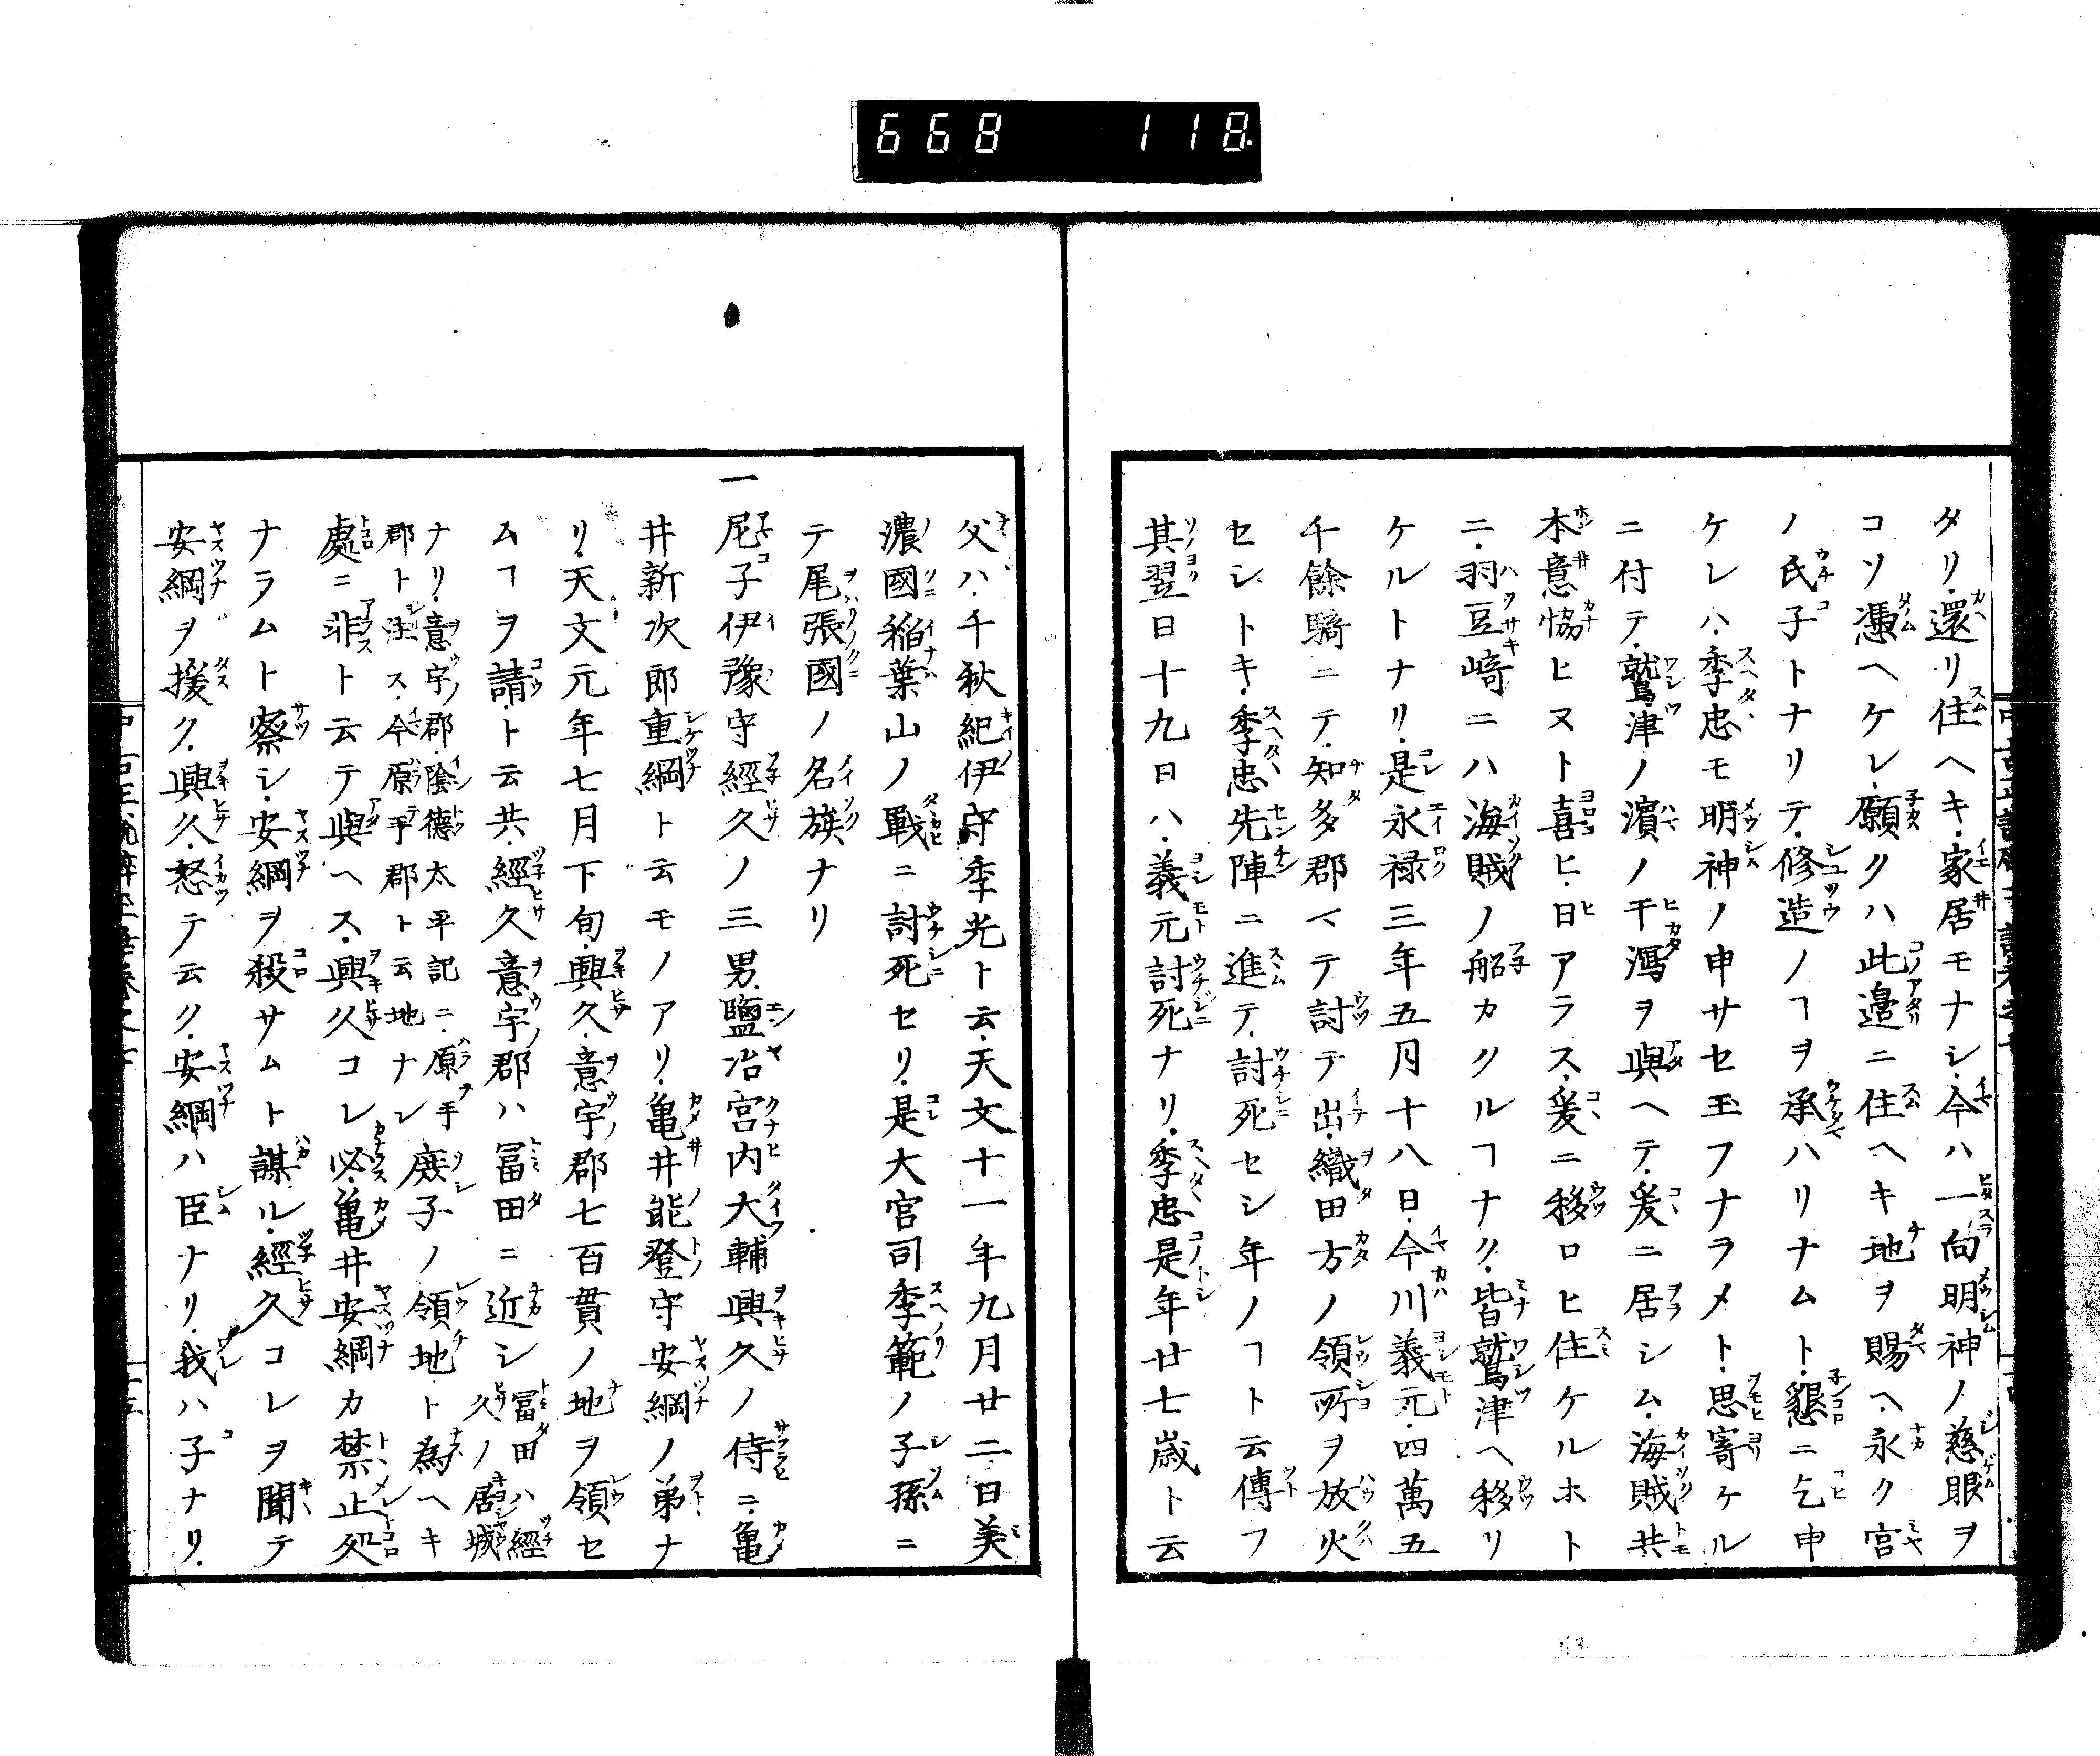 668 118
タリ還リ住ヘキ家居モナシ今ハ一向明神ノ慈眼ヲ
コソ憑ヘケレ願クハ此邉ニ住ヘキ地ヲ賜ヘ永ク宮
ノ氏子トナリテ修造ノヿヲ承ハリナムト懇ニ乞申
ケレハ季忠モ明神ノ申サセ玉フナラメト思寄ケル
ニ付テ鷲津ノ濵ノ干潟ヲ與ヘテ爰ニ居シム海賊共
本意恊ヒヌト喜ヒ日アラス爰ニ移ロヒ住ケルホト
ニ羽豆﨑ニハ海賊ノ舩カクルヿナク皆鷲津ヘ移リ
ケルトナリ是永禄三年五月十八日今川義元四萬五
千餘騎ニテ知多郡マテ討テ出織田方ノ領所ヲ放火
セシトキ季忠先陣ニ進テ討死セシ年ノヿト云傳フ
其翌日十九日ハ義元討死ナリ季忠是年廿七歳ト云
父ハ千秋紀伊守季光ト云天文十一年九月廿二日美
濃國稲葉山ノ戰ニ討死セリ是大宮司季範ノ子孫ニ
テ尾張國ノ名族ナリ
一尼子伊豫守經久ノ三男鹽冶宮内大輔興久ノ侍ニ亀
井新次郎重綱ト云モノアリ亀井能登守安綱ノ弟ナ
リ天文元年七月下旬興久意宇郡七百貫ノ地ヲ領セ
ムヿヲ請ト云共經久意宇郡ハ冨田ニ近シ冨田ハ經久ノ居城
ナリ意宇郡隂徳太平記ニ原手郡ト注ス今原手郡ト云地ナシ庻子ノ領地ト為ヘキ
處ニ非ト云テ與ヘス興久コレ必亀井安綱カ禁止処
ナラムト察シ安綱ヲ殺サムト謀ル經久コレヲ聞テ
安綱ヲ援ク興久怒テ云ク安綱ハ臣ナリ我ハ子ナリ